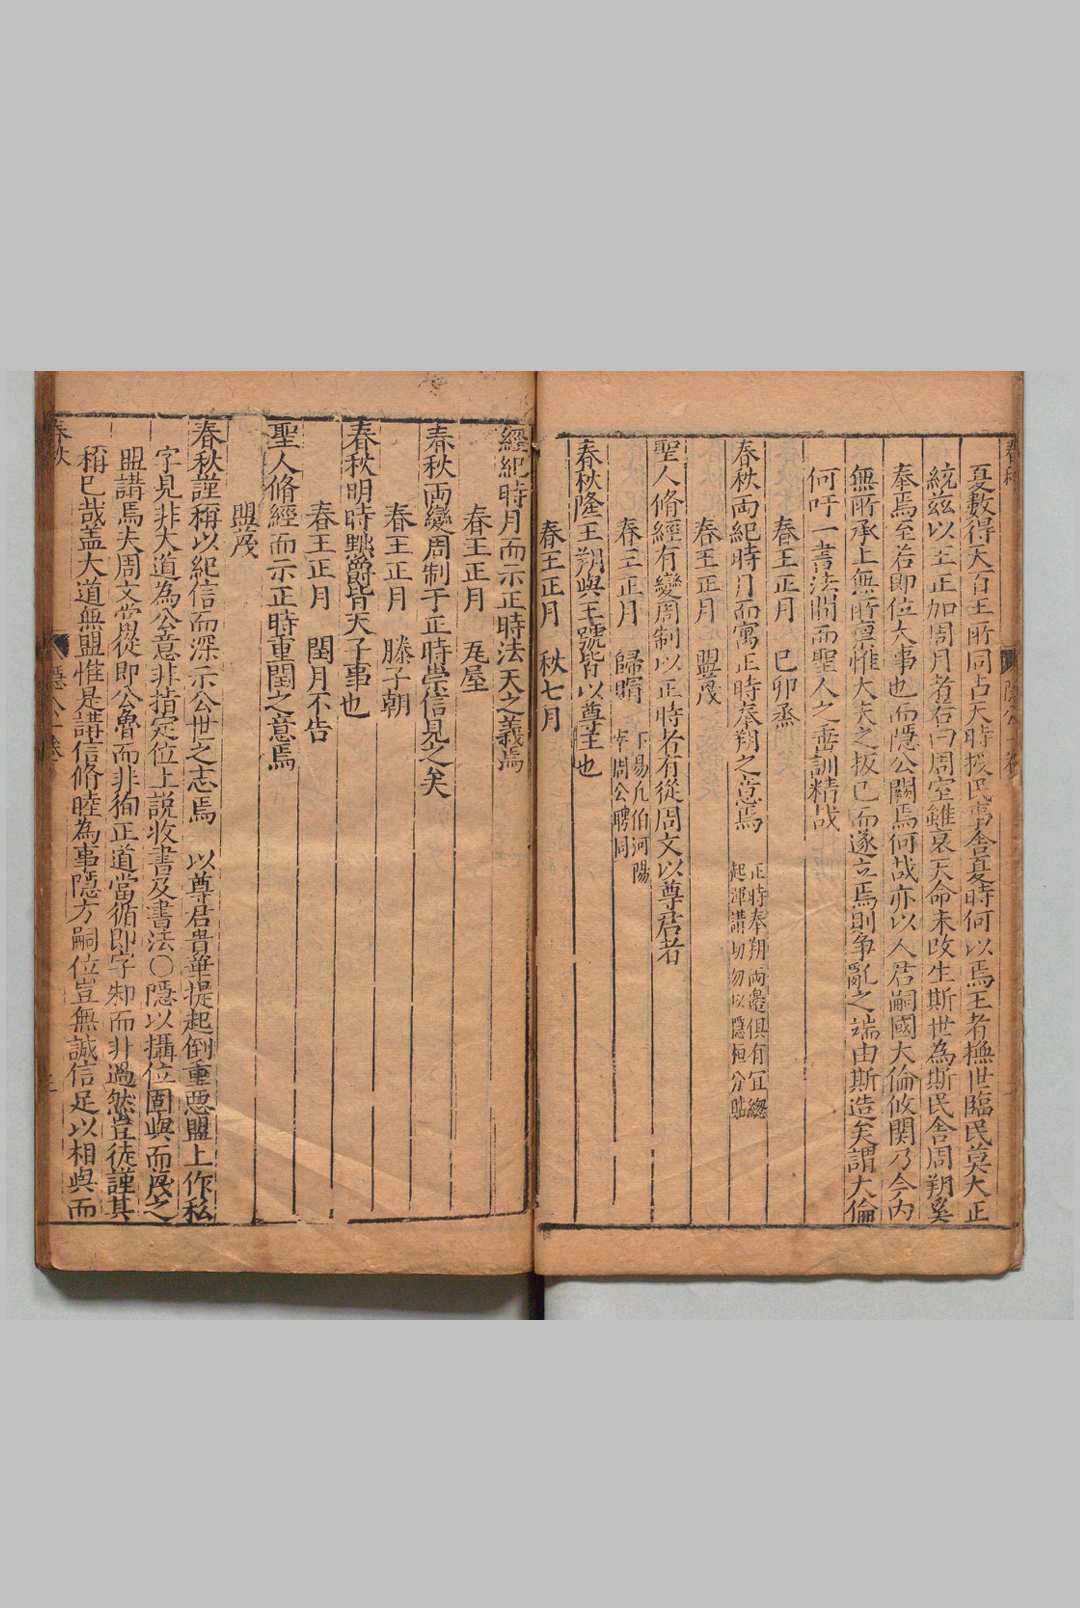 夏數得天百王所同占天時授民事舍夏時何以焉王者撫世臨民莫大正
統茲以王正加周月者若曰周室雖衰天命未改生斯世為斯民舍周朔奚
奉焉至若即位大事也而隱公闕焉何哉亦以人君嗣國大倫攸関乃今内
無所承上無所稟惟大夫之扳已而遂立焉則争亂之端由斯造矣謂大倫
何吁一書法間而聖人之垂訓精哉
春王正月 巳卯烝
春秋両紀時月而寓正時奉朔之意焉 正時奉朔両邉俱有冝緫
起渾講切勿以隱桓分貼
春王正月 盟茂
聖人脩經有變周制以正時者有從周文以尊君者
春王正月 歸賵 下陽凡伯河陽
宰周公聘同
春秋隆王朔與王號皆以尊王也
春王正月 秋七月
經紀時月而示正時法天之義焉
春王正月 瓦屋
春秋両變周制于正時崇信見之矣
春王正月 滕子朝
春秋明時黜爵皆天子事也
春王正月 閏月不告
聖人脩經而示正時重閏之意焉
盟茂
春秋謹稱以紀信而深示公世之志焉 以尊君貴華提起倒重惡盟上作私
字見非大道為公意非指定位上説收書及書法○隱以攝位固與而茂之
盟講焉夫周文當從即公魯而非狥正道當循即字邾而非過然豈徒謹其
稱已哉盖大道無盟惟是講信脩睦為事隱方嗣位豈無誠信足以相與而
春秋
隱公一卷
三